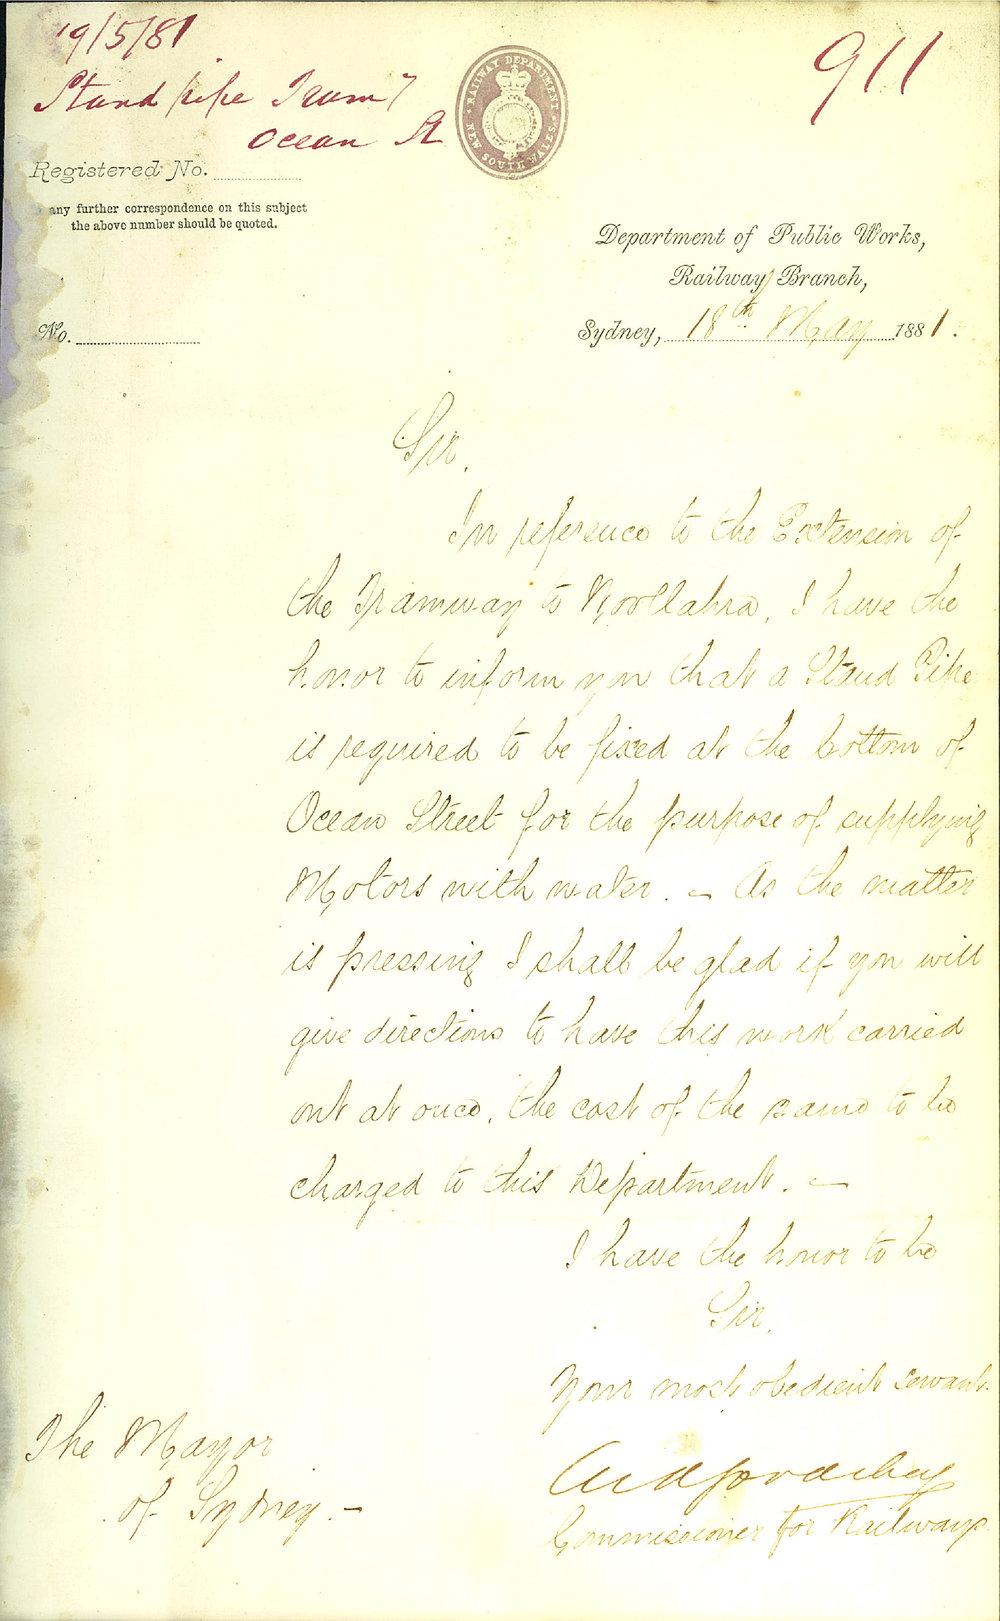 19/5/81
Stand pipe Tramy
Ocean St
911
RAILWAY DEPARTMENT
NEW SOUTH WALES
Registered No.
any further correspondence on this subject
the above number should be quoted.
Department of Public Works,
Railway Branch,
No.
Sydney, 18th May 1881.
Sir,
In reference to the Extension of
the Tramway to Woollahra, I have the
honor to inform you that a Stand Pipe
is required to be fixed at the bottom of
Ocean Street for the purpose of supplying
Motors with water. – As the matter
is pressing I shall be glad if you will
give directions to have this work carried
out at once, the cost of the same to be
charged to this Department. –
I have the honor to be
Sir,
Your most obedient servant.
Commissioner for Railways
The Mayor
of Sydney. –